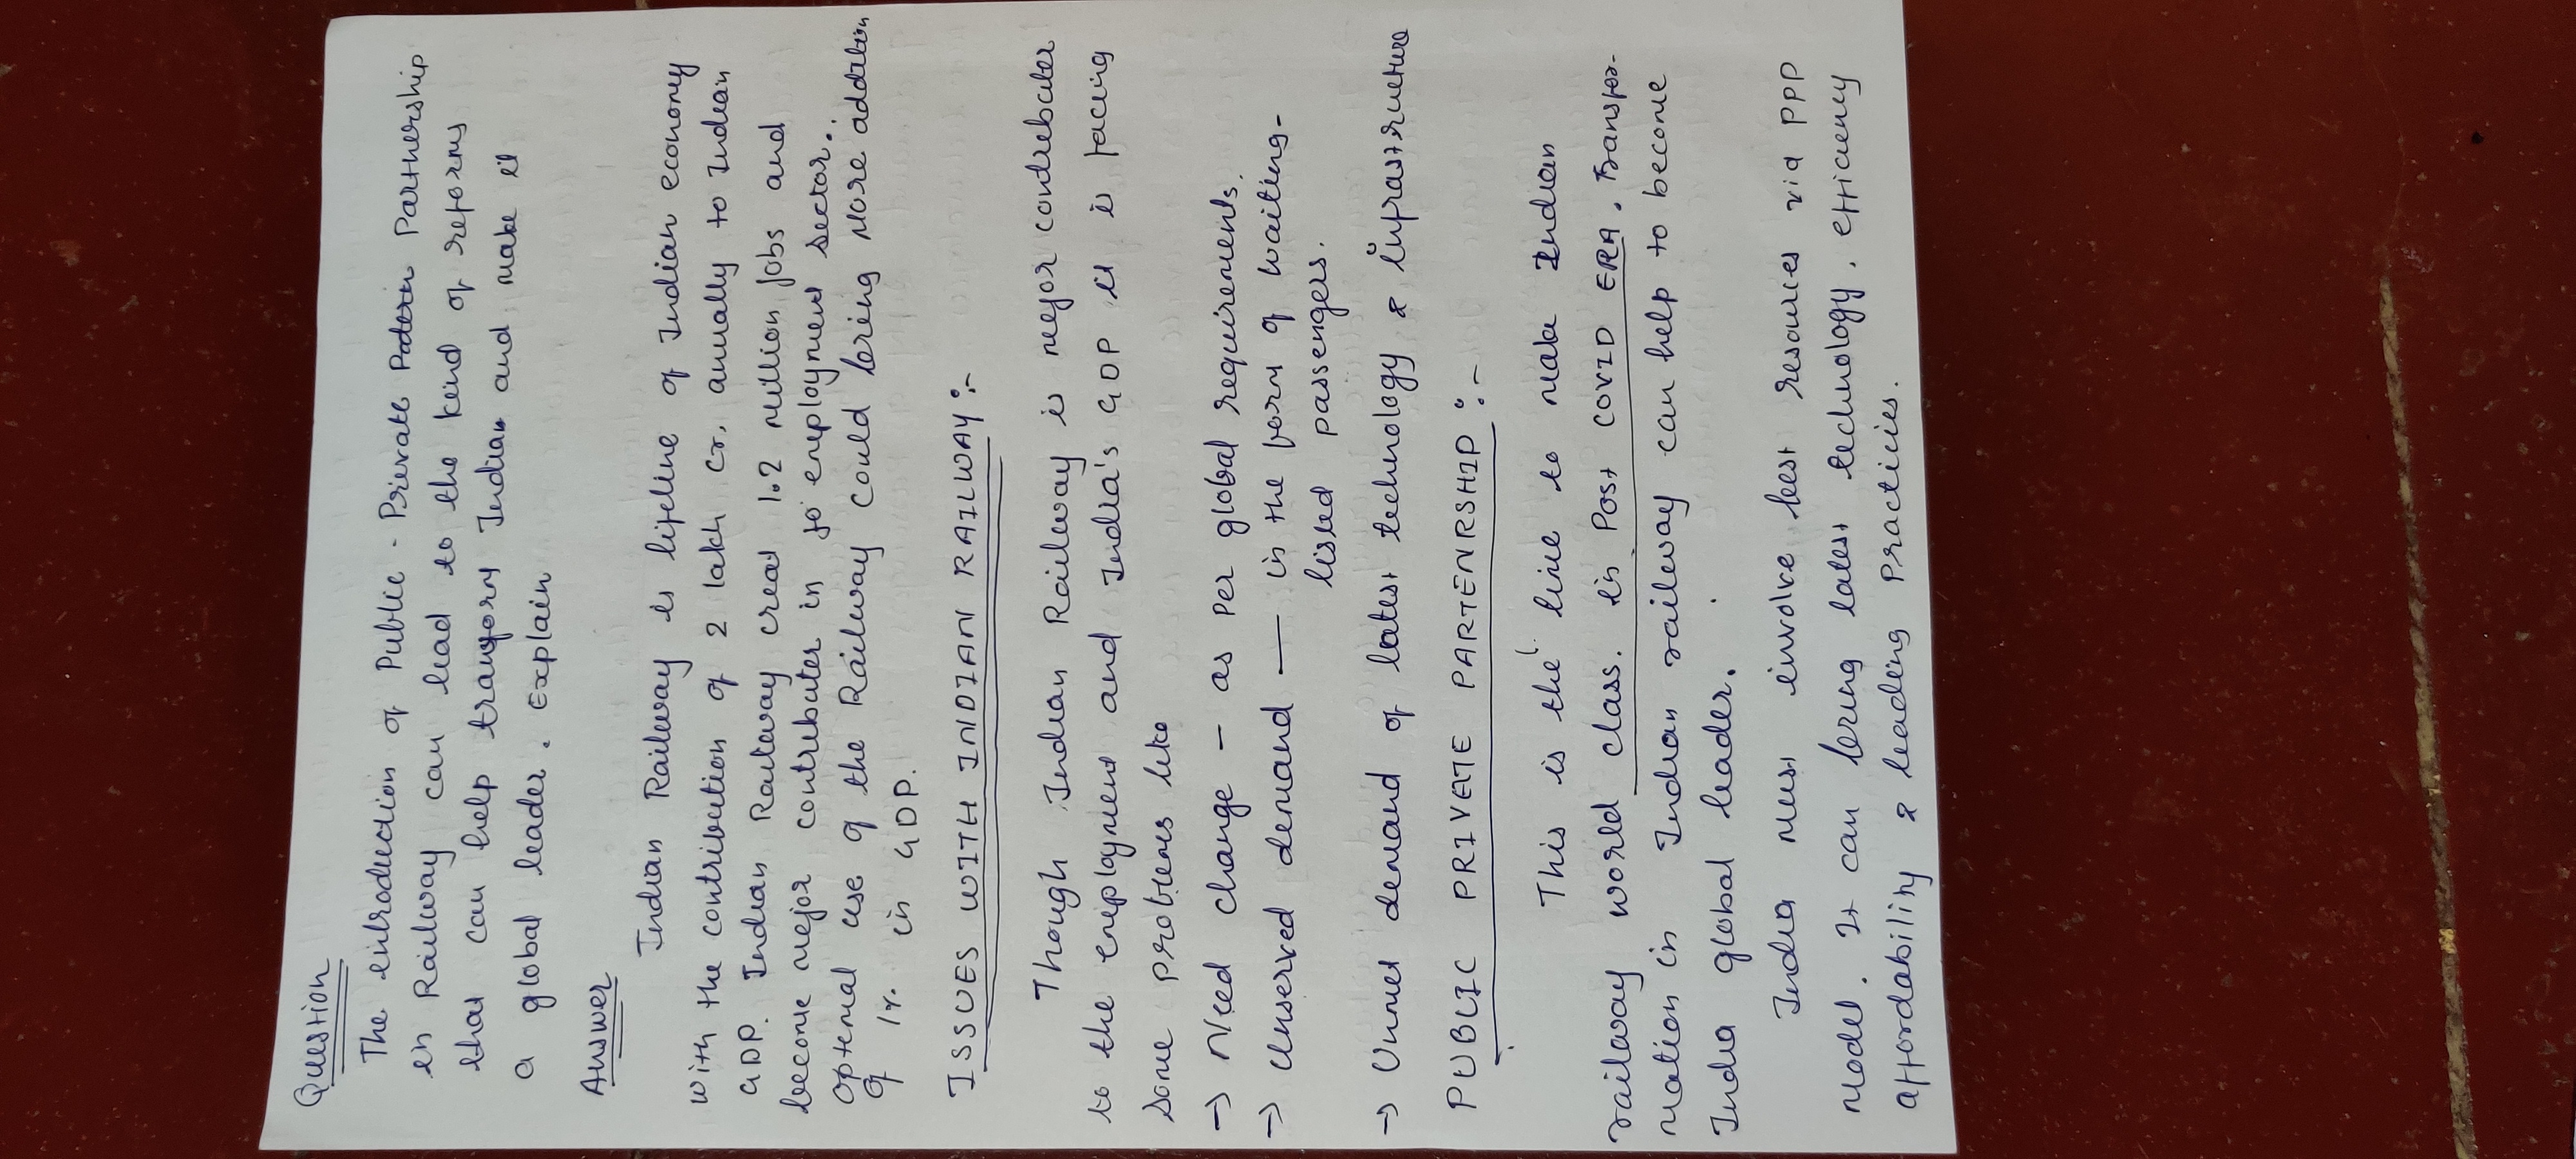 Question
The introduction of Public - Private Partnership
in Railway can lead to the kind of reforms
that can help transform Indian and make it
a global leader. Explain
Answer
Indian Railway is lifeline of Indian economy
with the contribution of 2 lakh cr. anually to Indian
GDP. Indian Railway creat 1.2 million jobs and
become mejor contributer in to employment sector.
optemal use of the Railway could bring More addition
of 1%. in GDP.
ISSUES WITH INDIAN RAILWAY :-
Though Indian Railway is mejor contributer
to the employment and India's GDP it is facing
some problems like
→ Need change - as per global requirements.
→ Unserved demand — in the form of waiting-
listed passengers.
→ Unmet demand of latest technology & infrastructure
PUBLIC PRIVETE PARTENRSHIP :-
This is the time to make Indian
railway world class. in Post COVID ERA. Transfor-
mation in Indian railway can help to become
India global leader.
India must involve best resources via PPP
model. It can bring latest technology, efficiency
affordability & leading practicies.